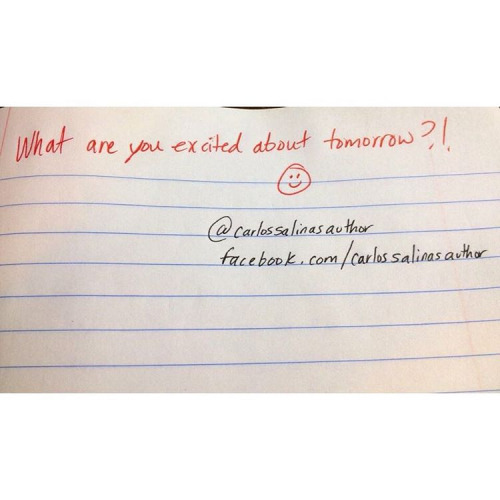 What are you excited about tomorrow?!
@carlossalinasauthor
facebook.com/carlossalinasauthor